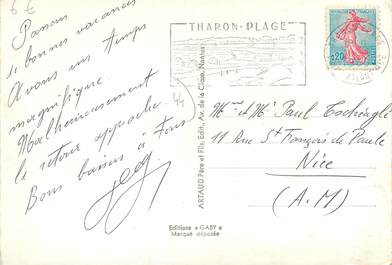 6 €
Passons
de bonnes vacances
Avons un temps
magnifique
Malheureusement
le retour approche
Bons baisers à Tous
44
THARON-PLAGE
0,20
ARTAUD Père et Fils, Edit., Av. de la Close, Nantes
Editions « GABY »
Marque déposée
Mme et Mr Paul
11 Rue St François de Paule
Nice
(A-M)